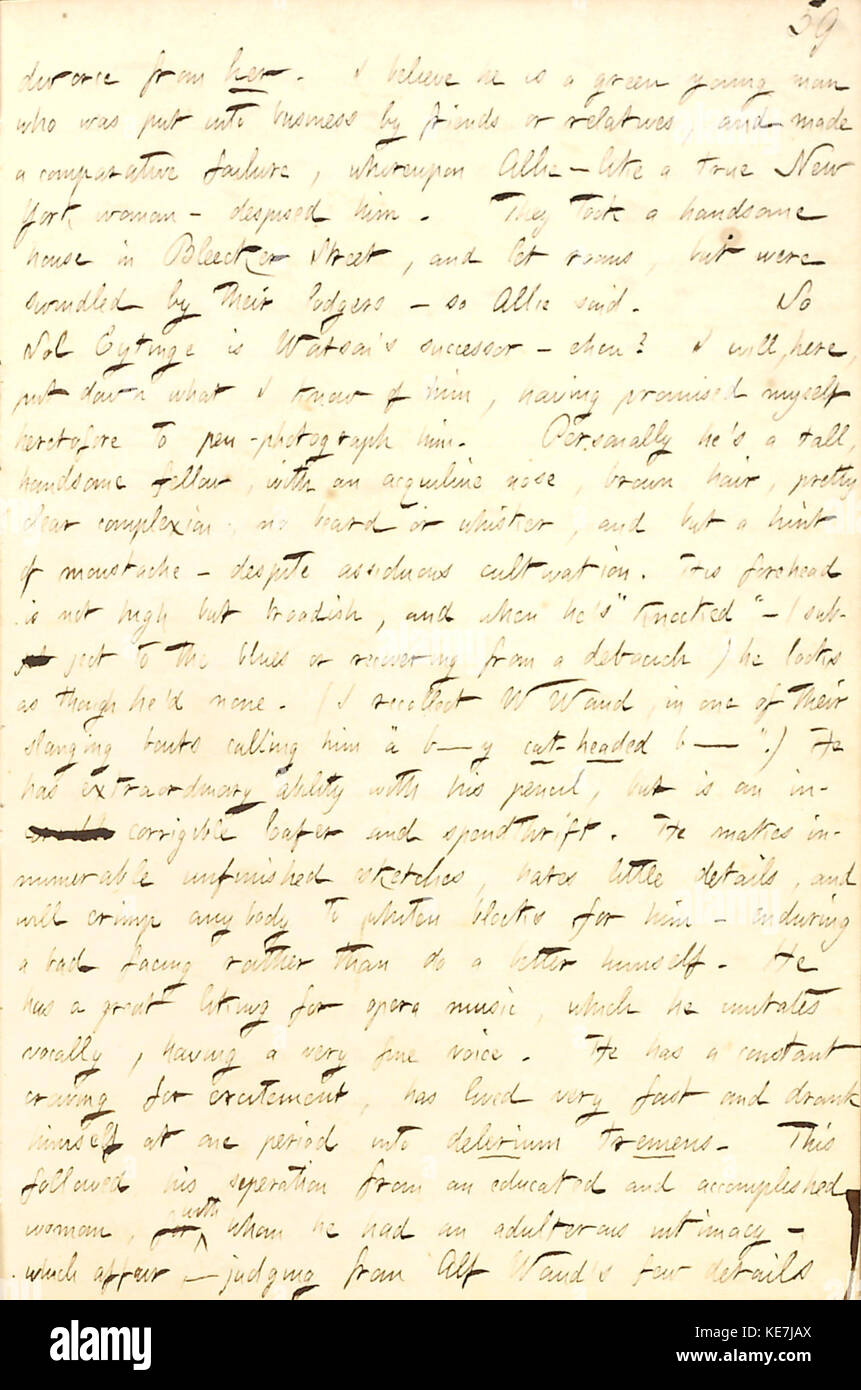 59
divorce from her. I believe he is a green young man
who was put into business by friends or relatives, and made
a comparative failure, whereupon Allie - like a true New
York woman - despised him. They took a handsome
house in Bleecker Street, and let rooms, but were
swindled by their lodgers - so Allie said. So
Sol Eytinge is Watson's successor - eheu? I will, here,
put down what I know of him, having promised myself
heretofore to pen-photograph him. Personally he's a tall,
handsome fellow, with an acquiline nose, brown hair, pretty
clear complexion, no beard or whisker, and but a hint
of moustache - despite assiduous cultivation. His forehead
is not high but broadish, and when he's "knocked" - (sub-
ject to the blues or recovering from a debauch) he looks
as though he'd none. (I recollect W Waud, in one of their
slanging bouts calling him "a b—y cat-headed b—".) He
has extraordinary ability with his pencil, but is an in-
corrigible loafer and spendthrift. He makes in-
numerable unfinished sketches, hates little details, and
will crimp anybody to whiten blocks for him - enduring
a bad facing rather than do a better himself. He
has a great liking for opera music, which he imitates
vocally, having a very fine voice. He has a constant
craving for excitement, has lived very fast and drank
himself at one period into delirium tremens. This
followed his seperation from an educated and accomplished
woman, with whom he had an adulterous intimacy -
which affair, - judging from Alf Waud's few details
alamy stock photo
KE7JAX
www.alamy.com